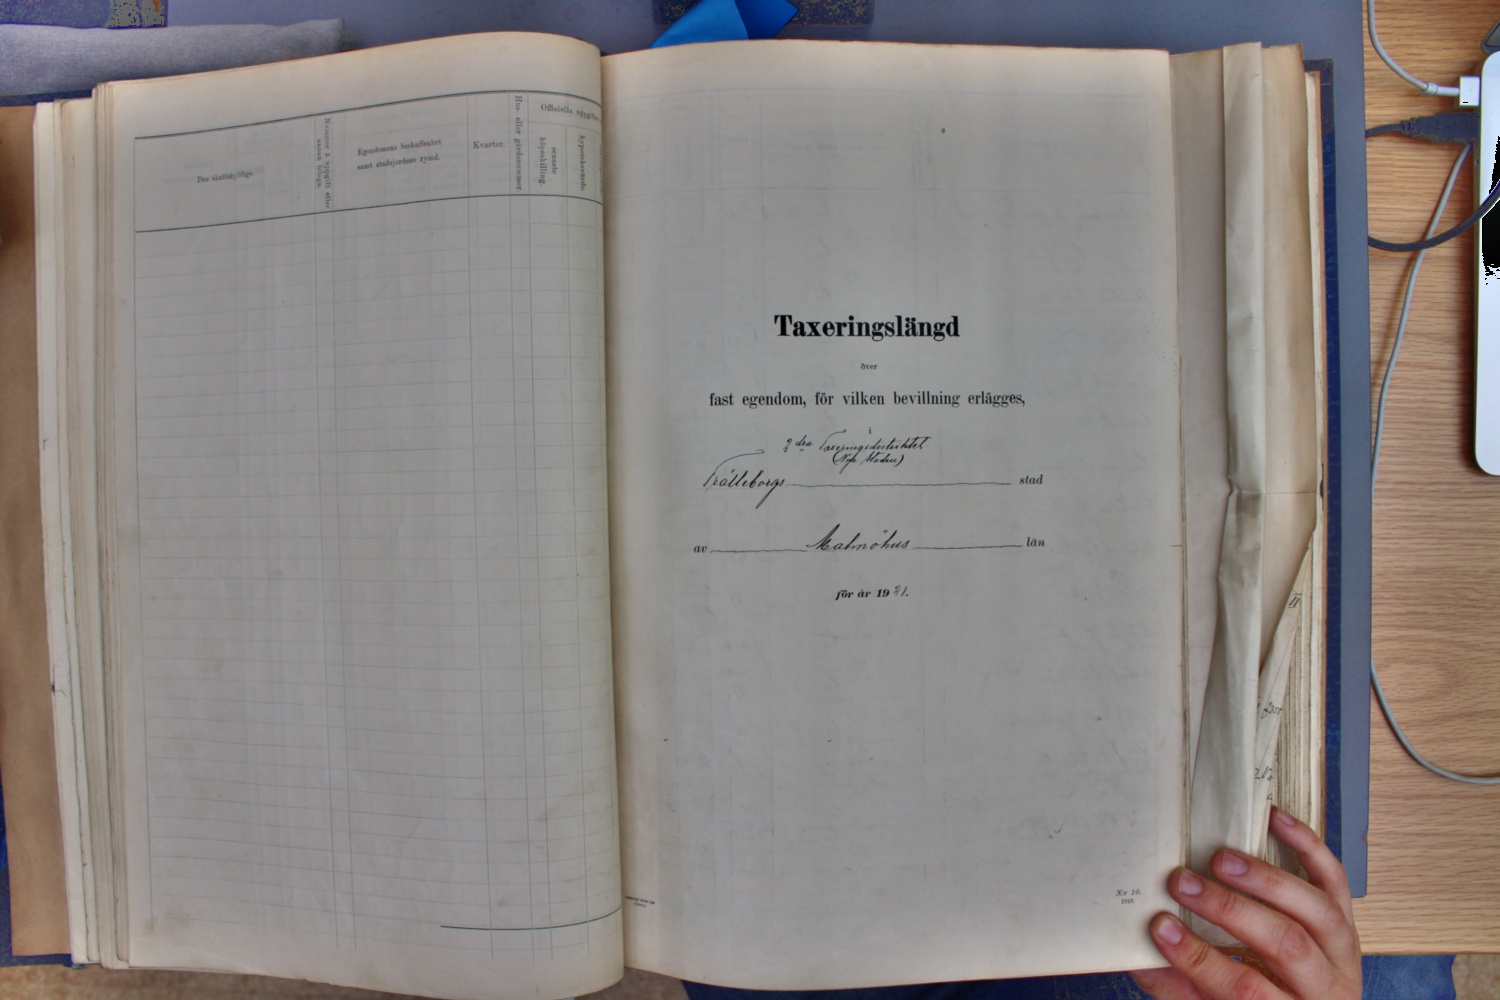 Den skattskyldige.
Nummer å uppgift eller annan bilaga.
Egendomens beskaffenhet
samt stadsjordens rymd.
Kvarter.
Hus- eller gårdsnummer.
Officiella uppgifter
senaste
köpeskilling.
hypoteksvärde.
Taxeringslängd
över
fast egendom, för vilken bevillning erlägges,
i
2 dra Taxeringsdistriktet
(Nya staden)
Trälleborgs stad
av Malmöhus län
för år 1921.
N:r 10.
1919.